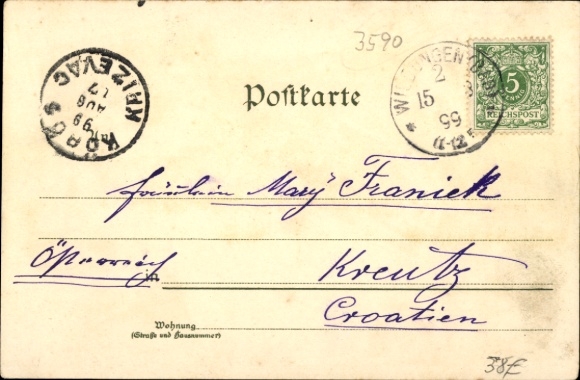 3590
5
REICHSPOST
2
15
99
11-12
KÖRÖS
KRIZEVAC
99
AUG
17
Postkarte
Fräulein Mary Franiek
Österreich
in
Kreutz
Croatien
Wohnung
(Straße und Hausnummer)
38€